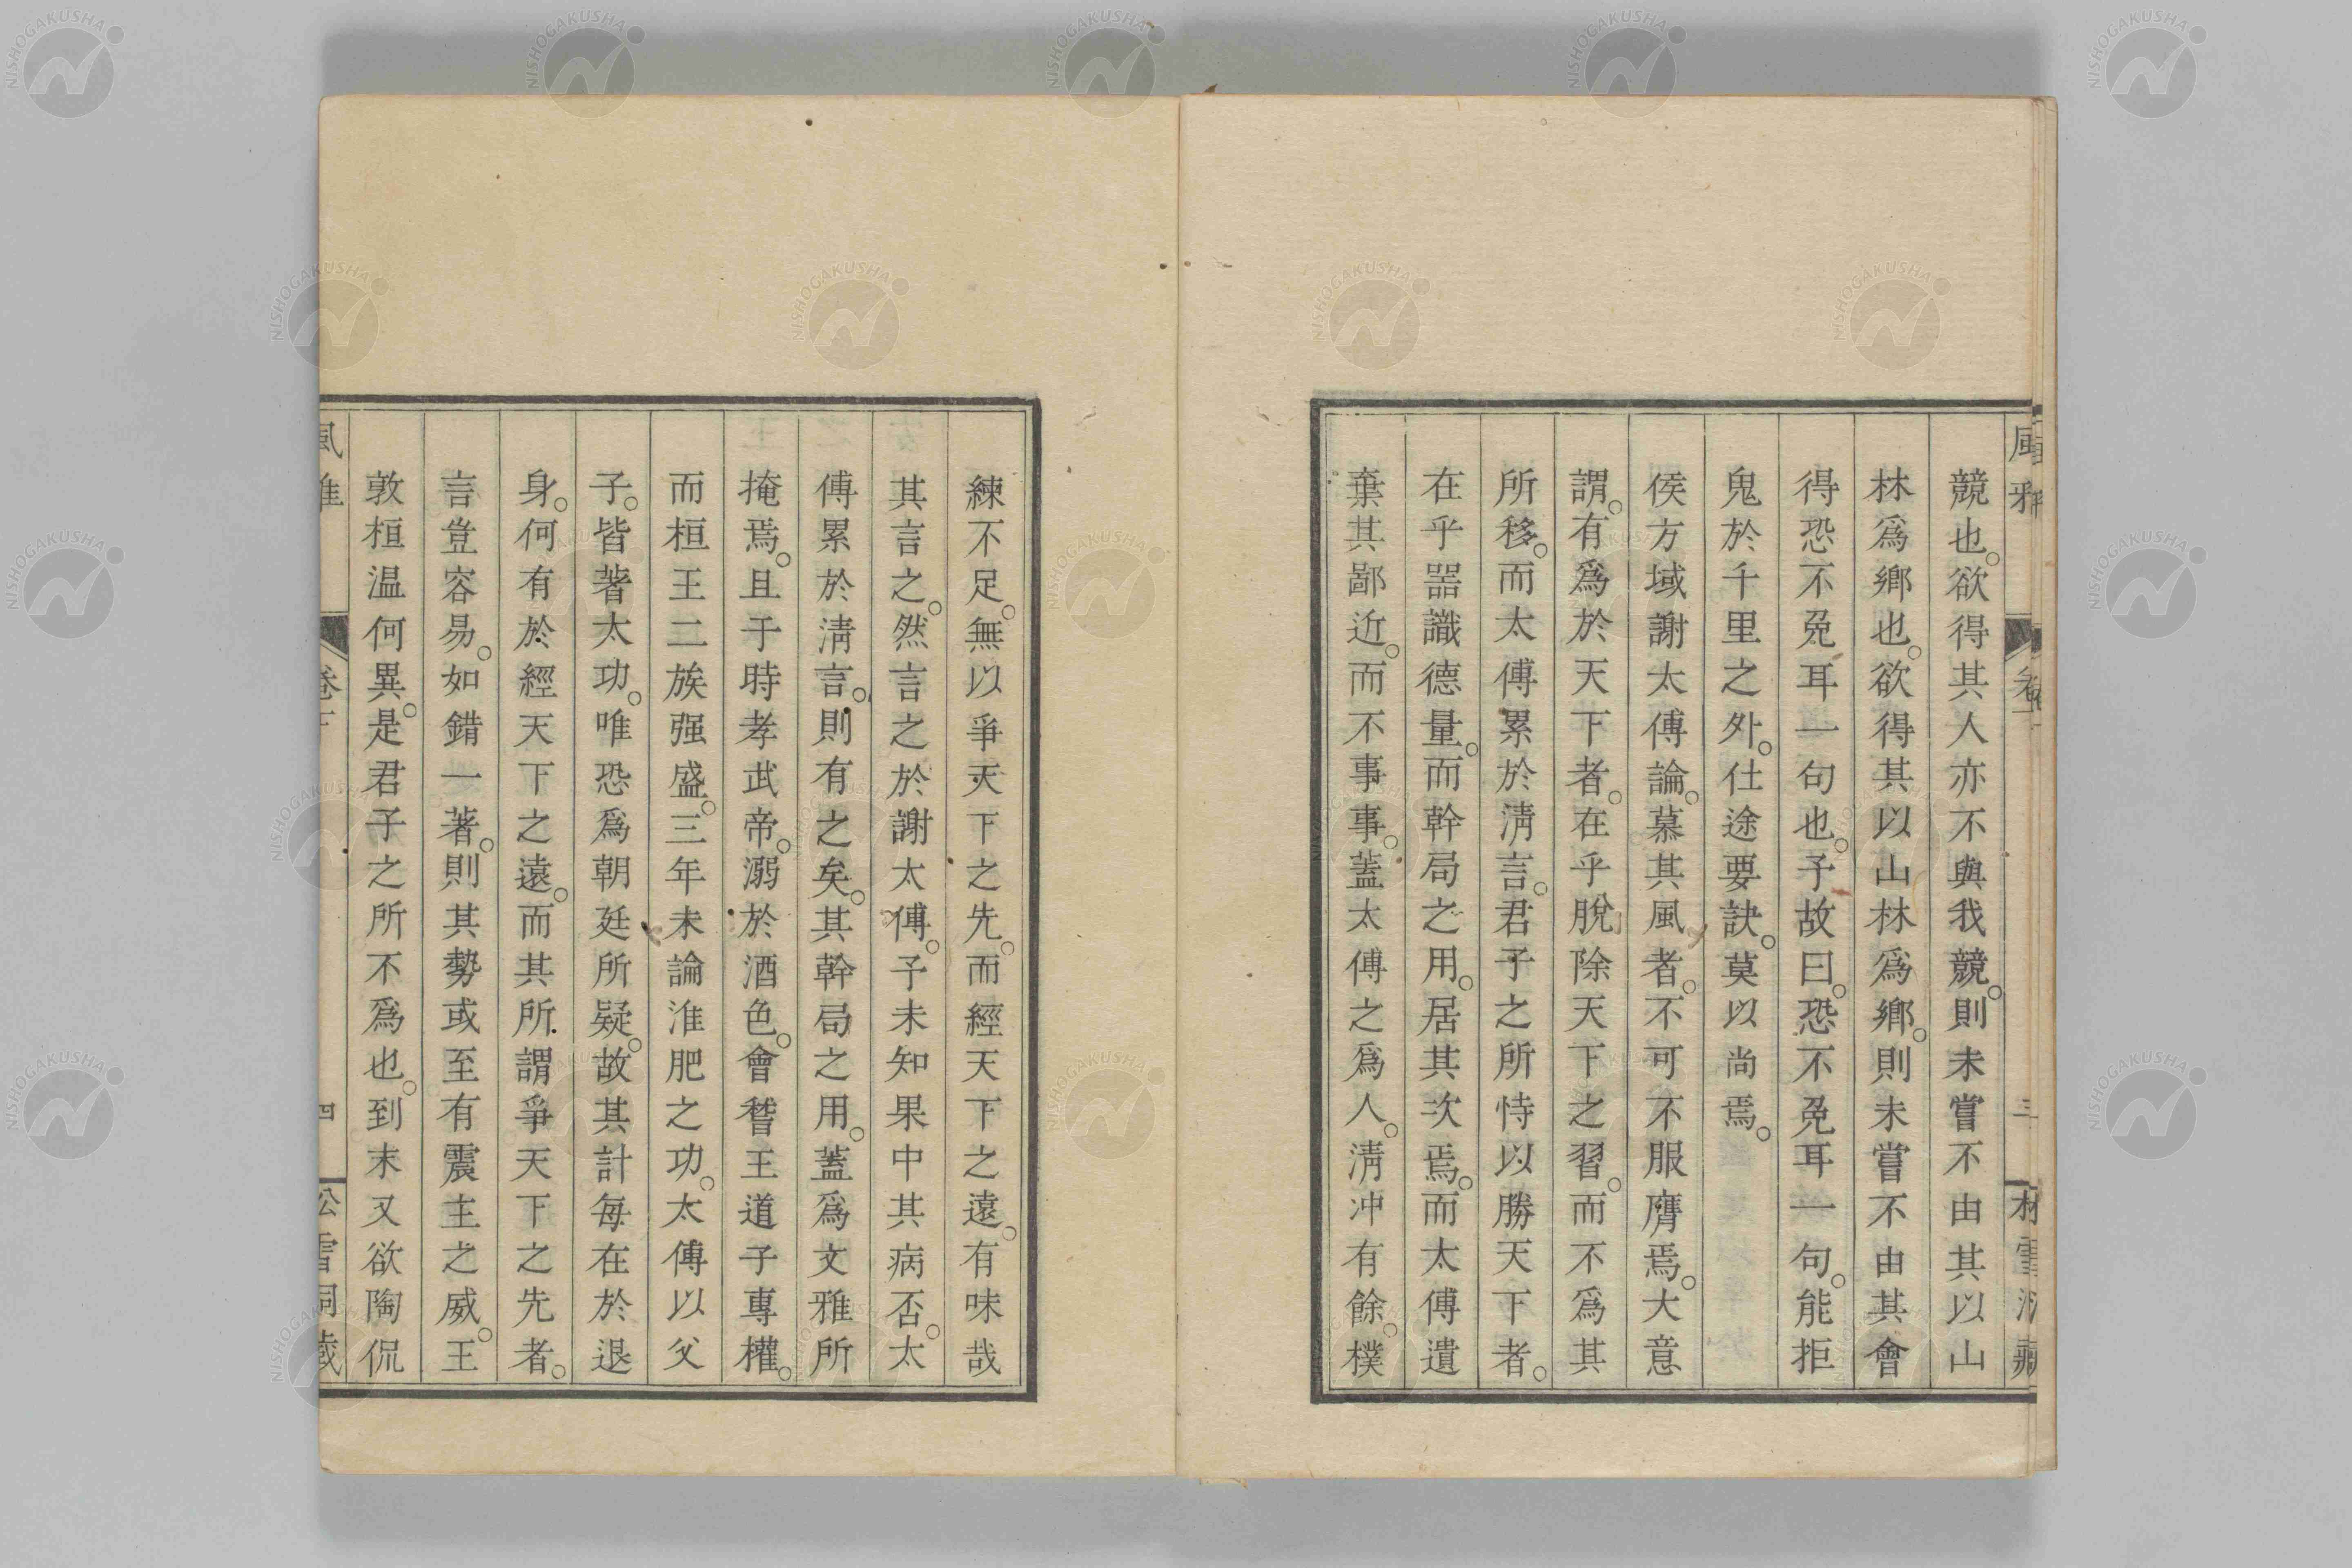 競也。欲得其人亦不與我競。則未嘗不由其以山
林爲鄉也。欲得其以山林爲鄉。則未嘗不由其會
得恐不免耳一句也。予故曰。恐不免耳一句。能拒
鬼於千里之外。仕途要訣。莫以尚焉。
侯方域謝太傅論。慕其風者。不可不服膺焉。大意
謂。有爲於天下者。在乎脫除天下之習。而不爲其
所移。而太傅累於淸言。君子之所恃以勝天下者。
在乎器識德量。而幹局之用。居其次焉。而太傅遺
棄其鄙近。而不事事。蓋太傅之爲人。淸沖有餘。樸
練不足。無以爭天下之先。而經天下之遠。有味哉
其言之。然言之於謝太傅。予未知果中其病否。太
傅累於淸言。則有之矣。其幹局之用。蓋爲文雅所
掩焉。且于時孝武帝。溺於酒色。會稽王道子專權。
而桓王二族强盛。三年未論淮肥之功。太傅以父
子。皆著太功。唯恐爲朝廷所疑。故其計每在於退
身。何有於經天下之遠。而其所謂爭天下之先者。
言豈容易。如錯一著。則其勢或至有震主之威。王
敦桓温何異。是君子之所不爲也。到末又欲陶侃
風雅
三
四
NISHOGAKUSHA